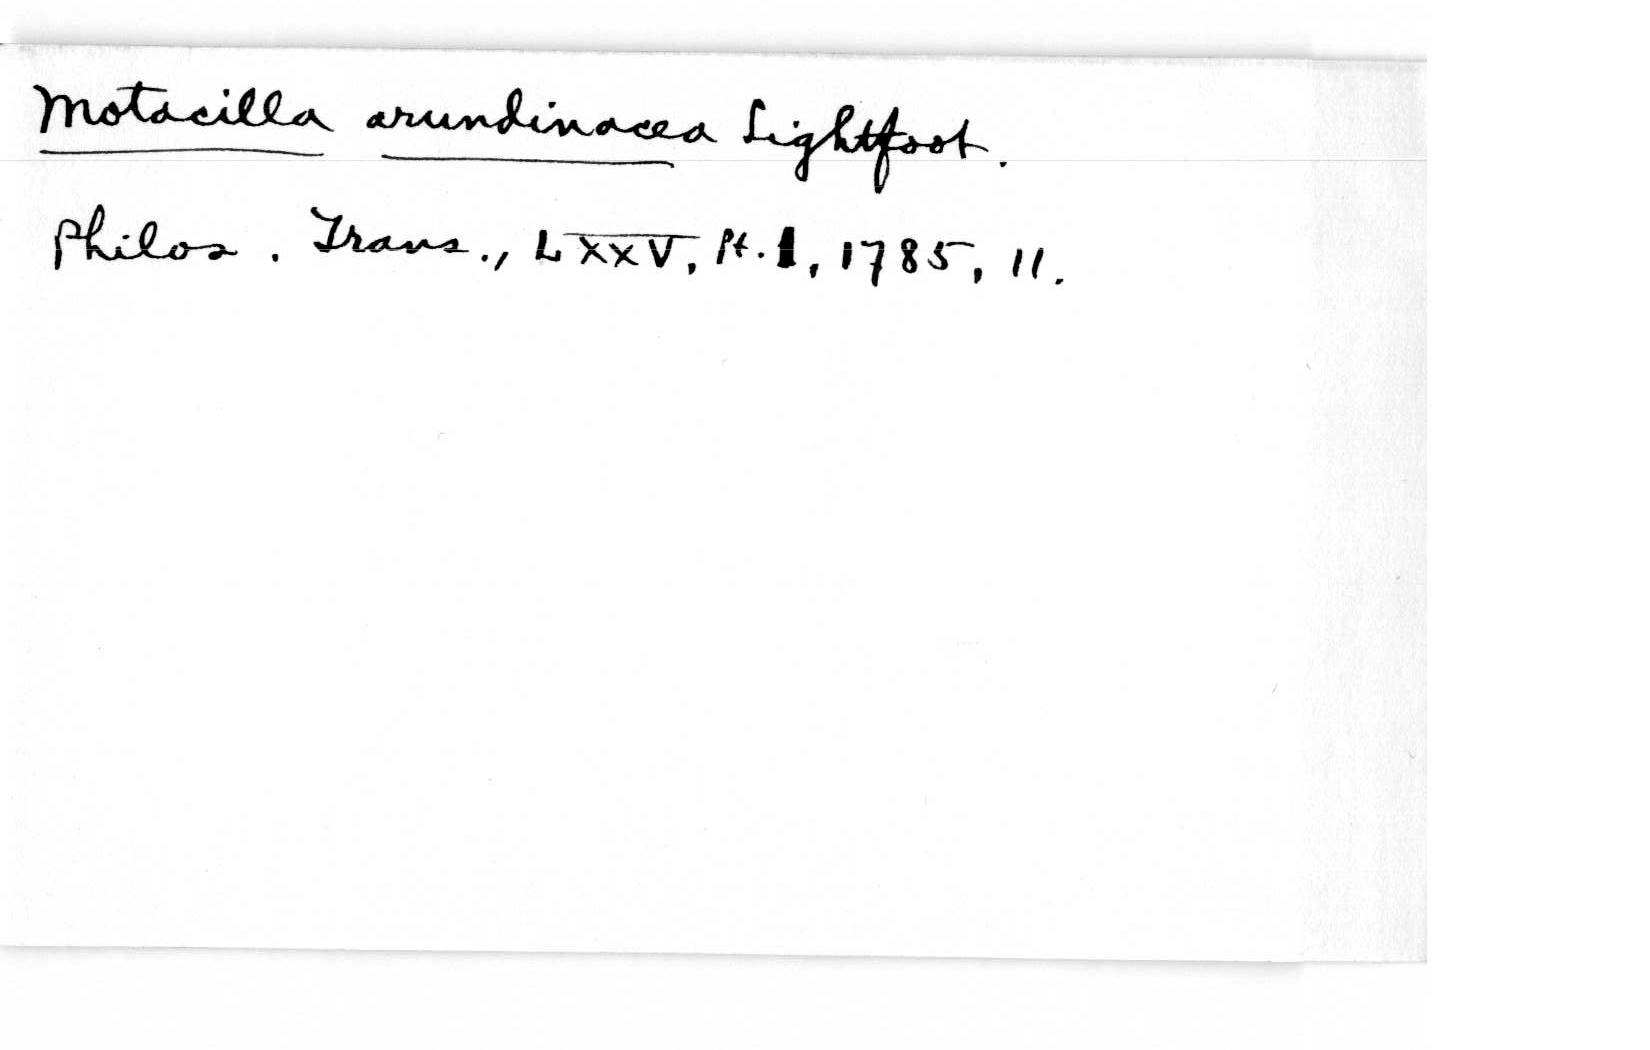 Motacilla arundinacea Lightfoot.
Philos. Trans., LXXV, Pt. 1, 1785, 11.